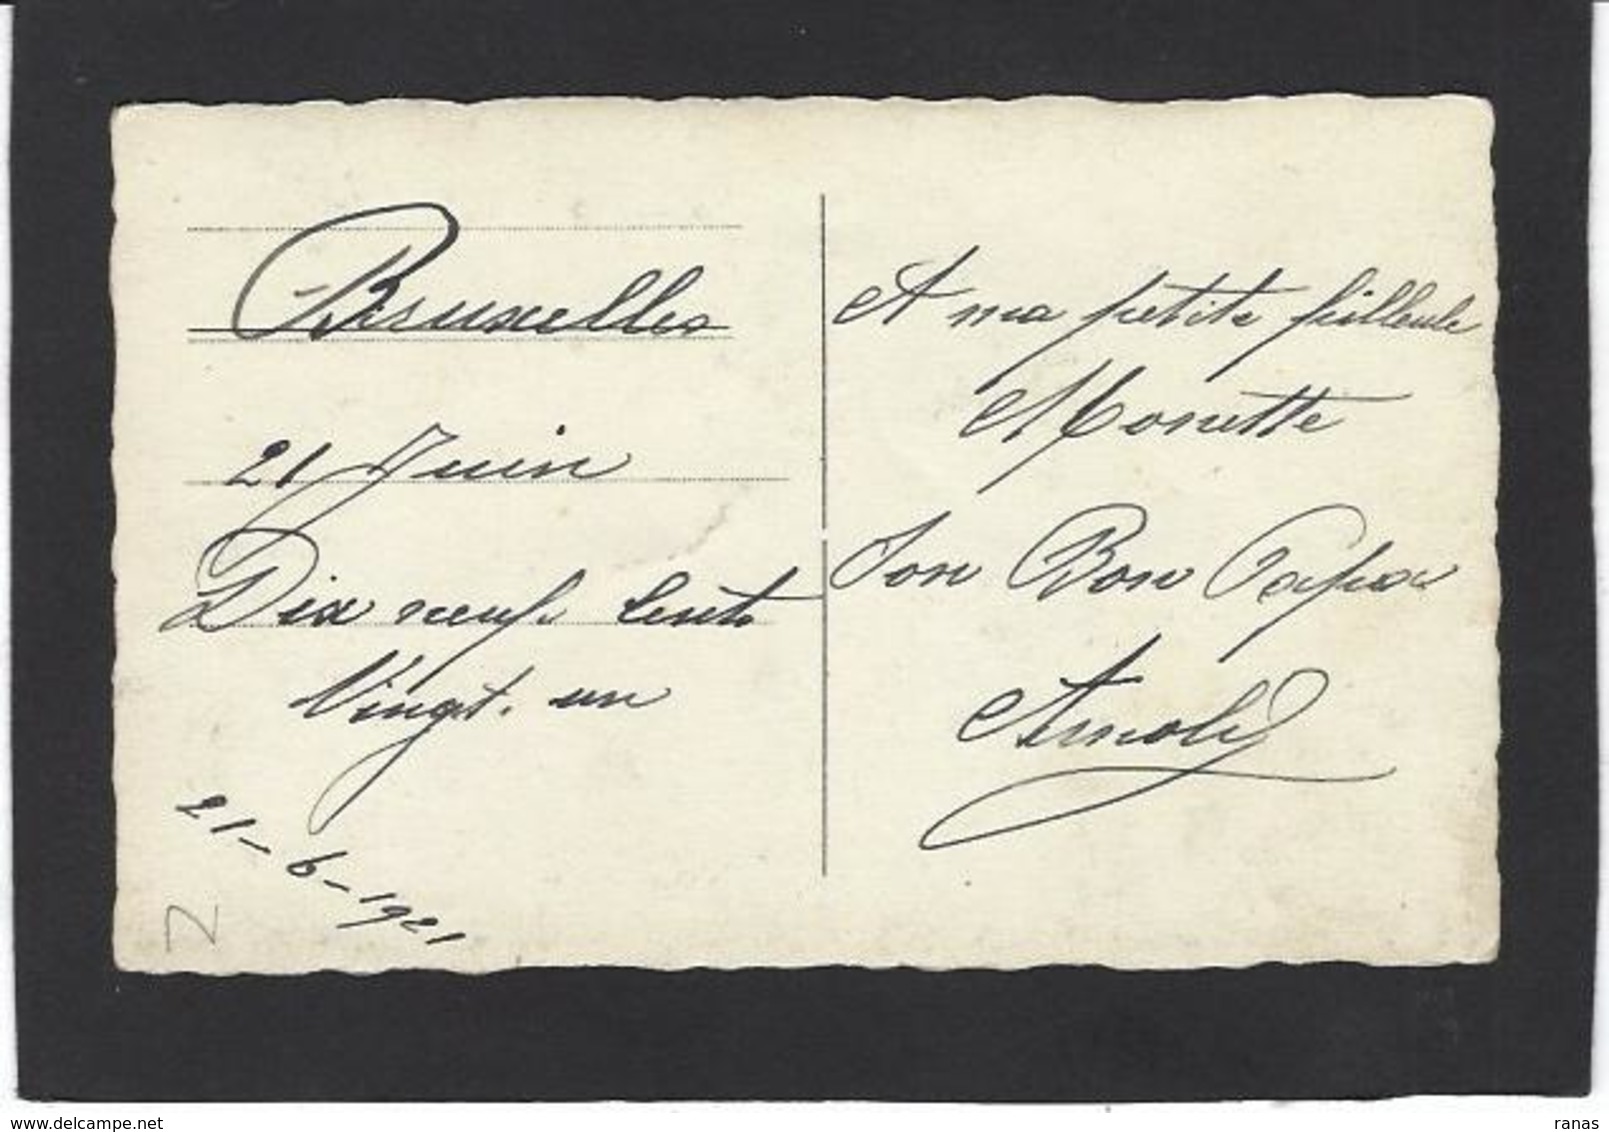 Bruxelles
21 Juin
Dix neuf Cent
Vingt. un
21-6-1921
Z
A ma petite filleule
Monette
Son Bon Papa
Arnold
delcampe.net
ranas